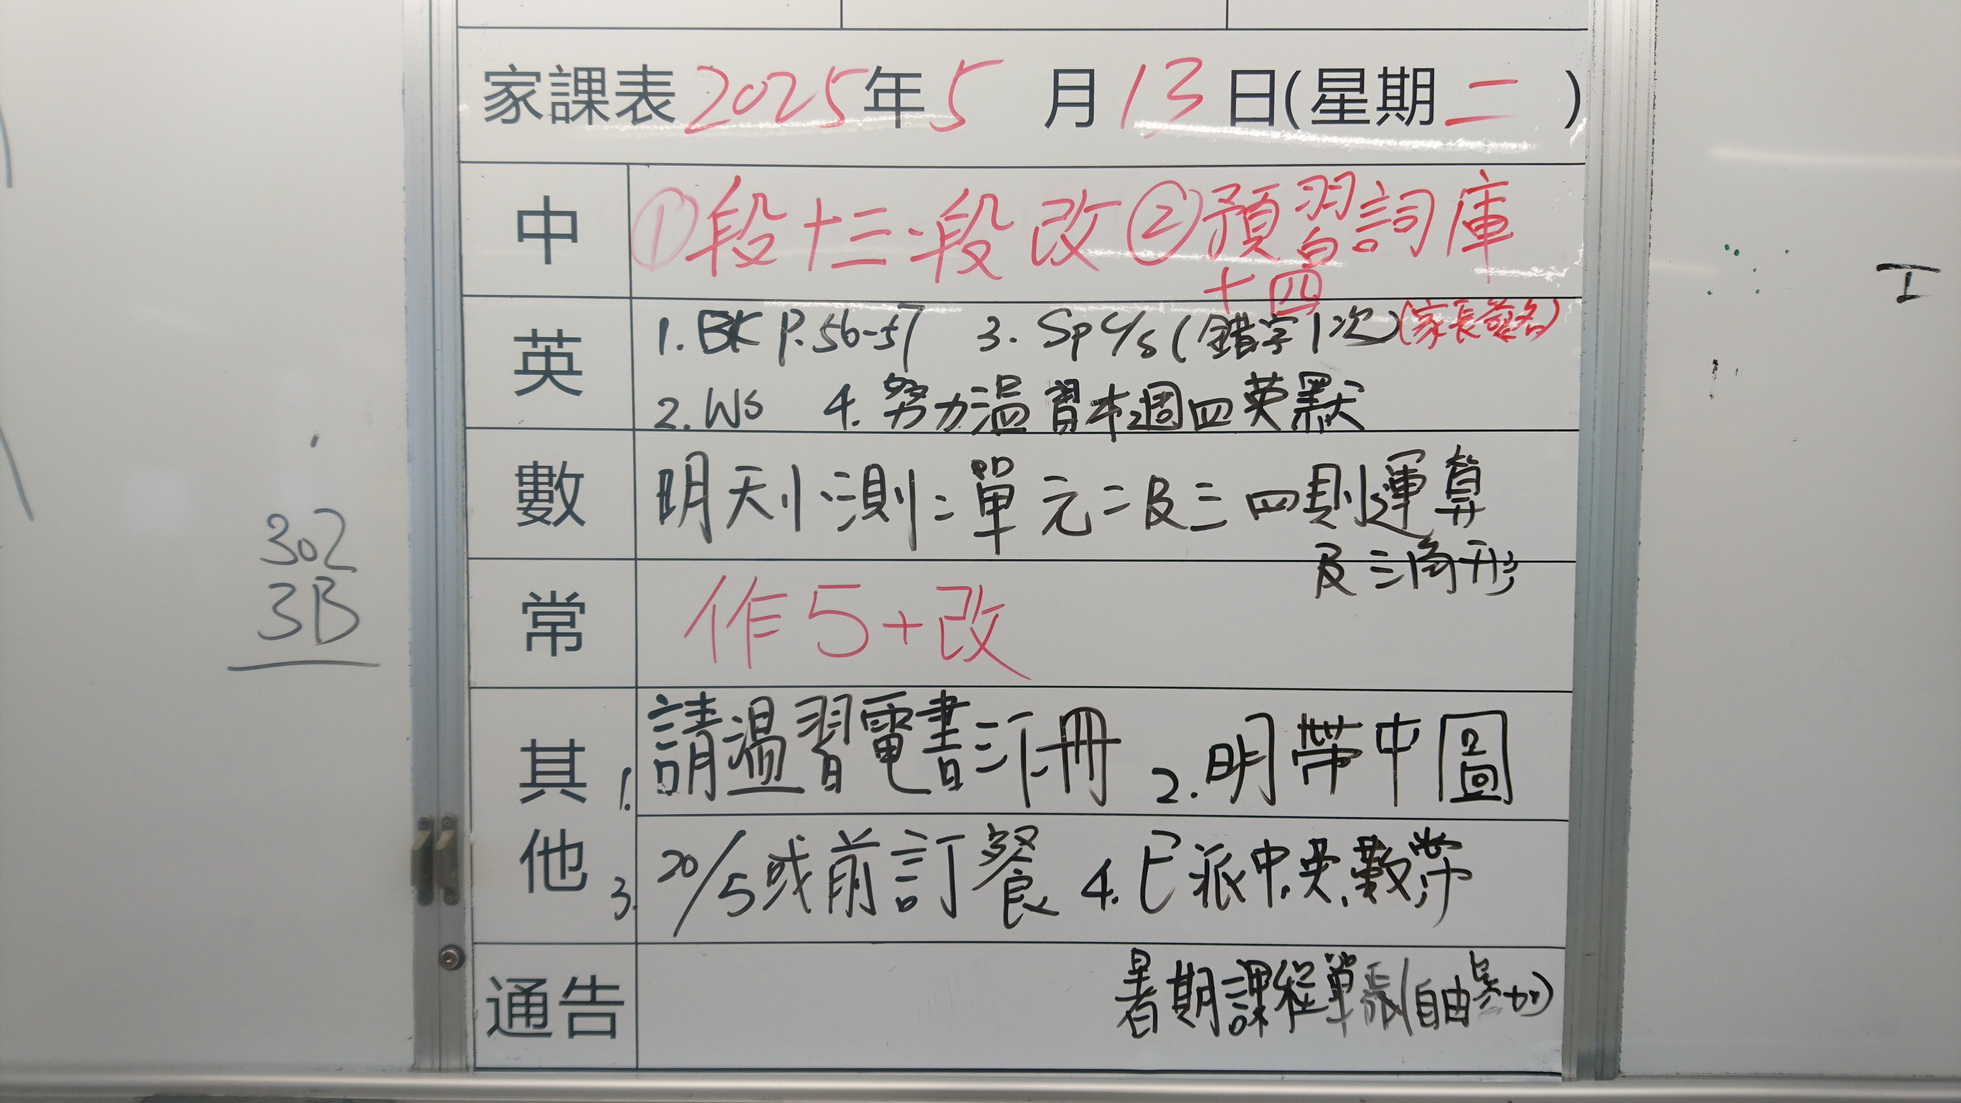 家課表 2025年5月13日(星期二)
中 ①段十三段改 ②預習詞庫
十四
英 1. BK P.56-57 3. Sp c/s (錯字1次)(家長簽名)
2. WS 4. 努力溫習本週四英默
數 明天小測:單元二及三 四則運算
及三角形
常 作5+改
其他 1. 請溫習電書訂冊 2. 明帶中圖
3. 20/5或前訂餐 4. 已派中,英,數,常
通告 暑期課程單張(自由參加)
302
3B
I